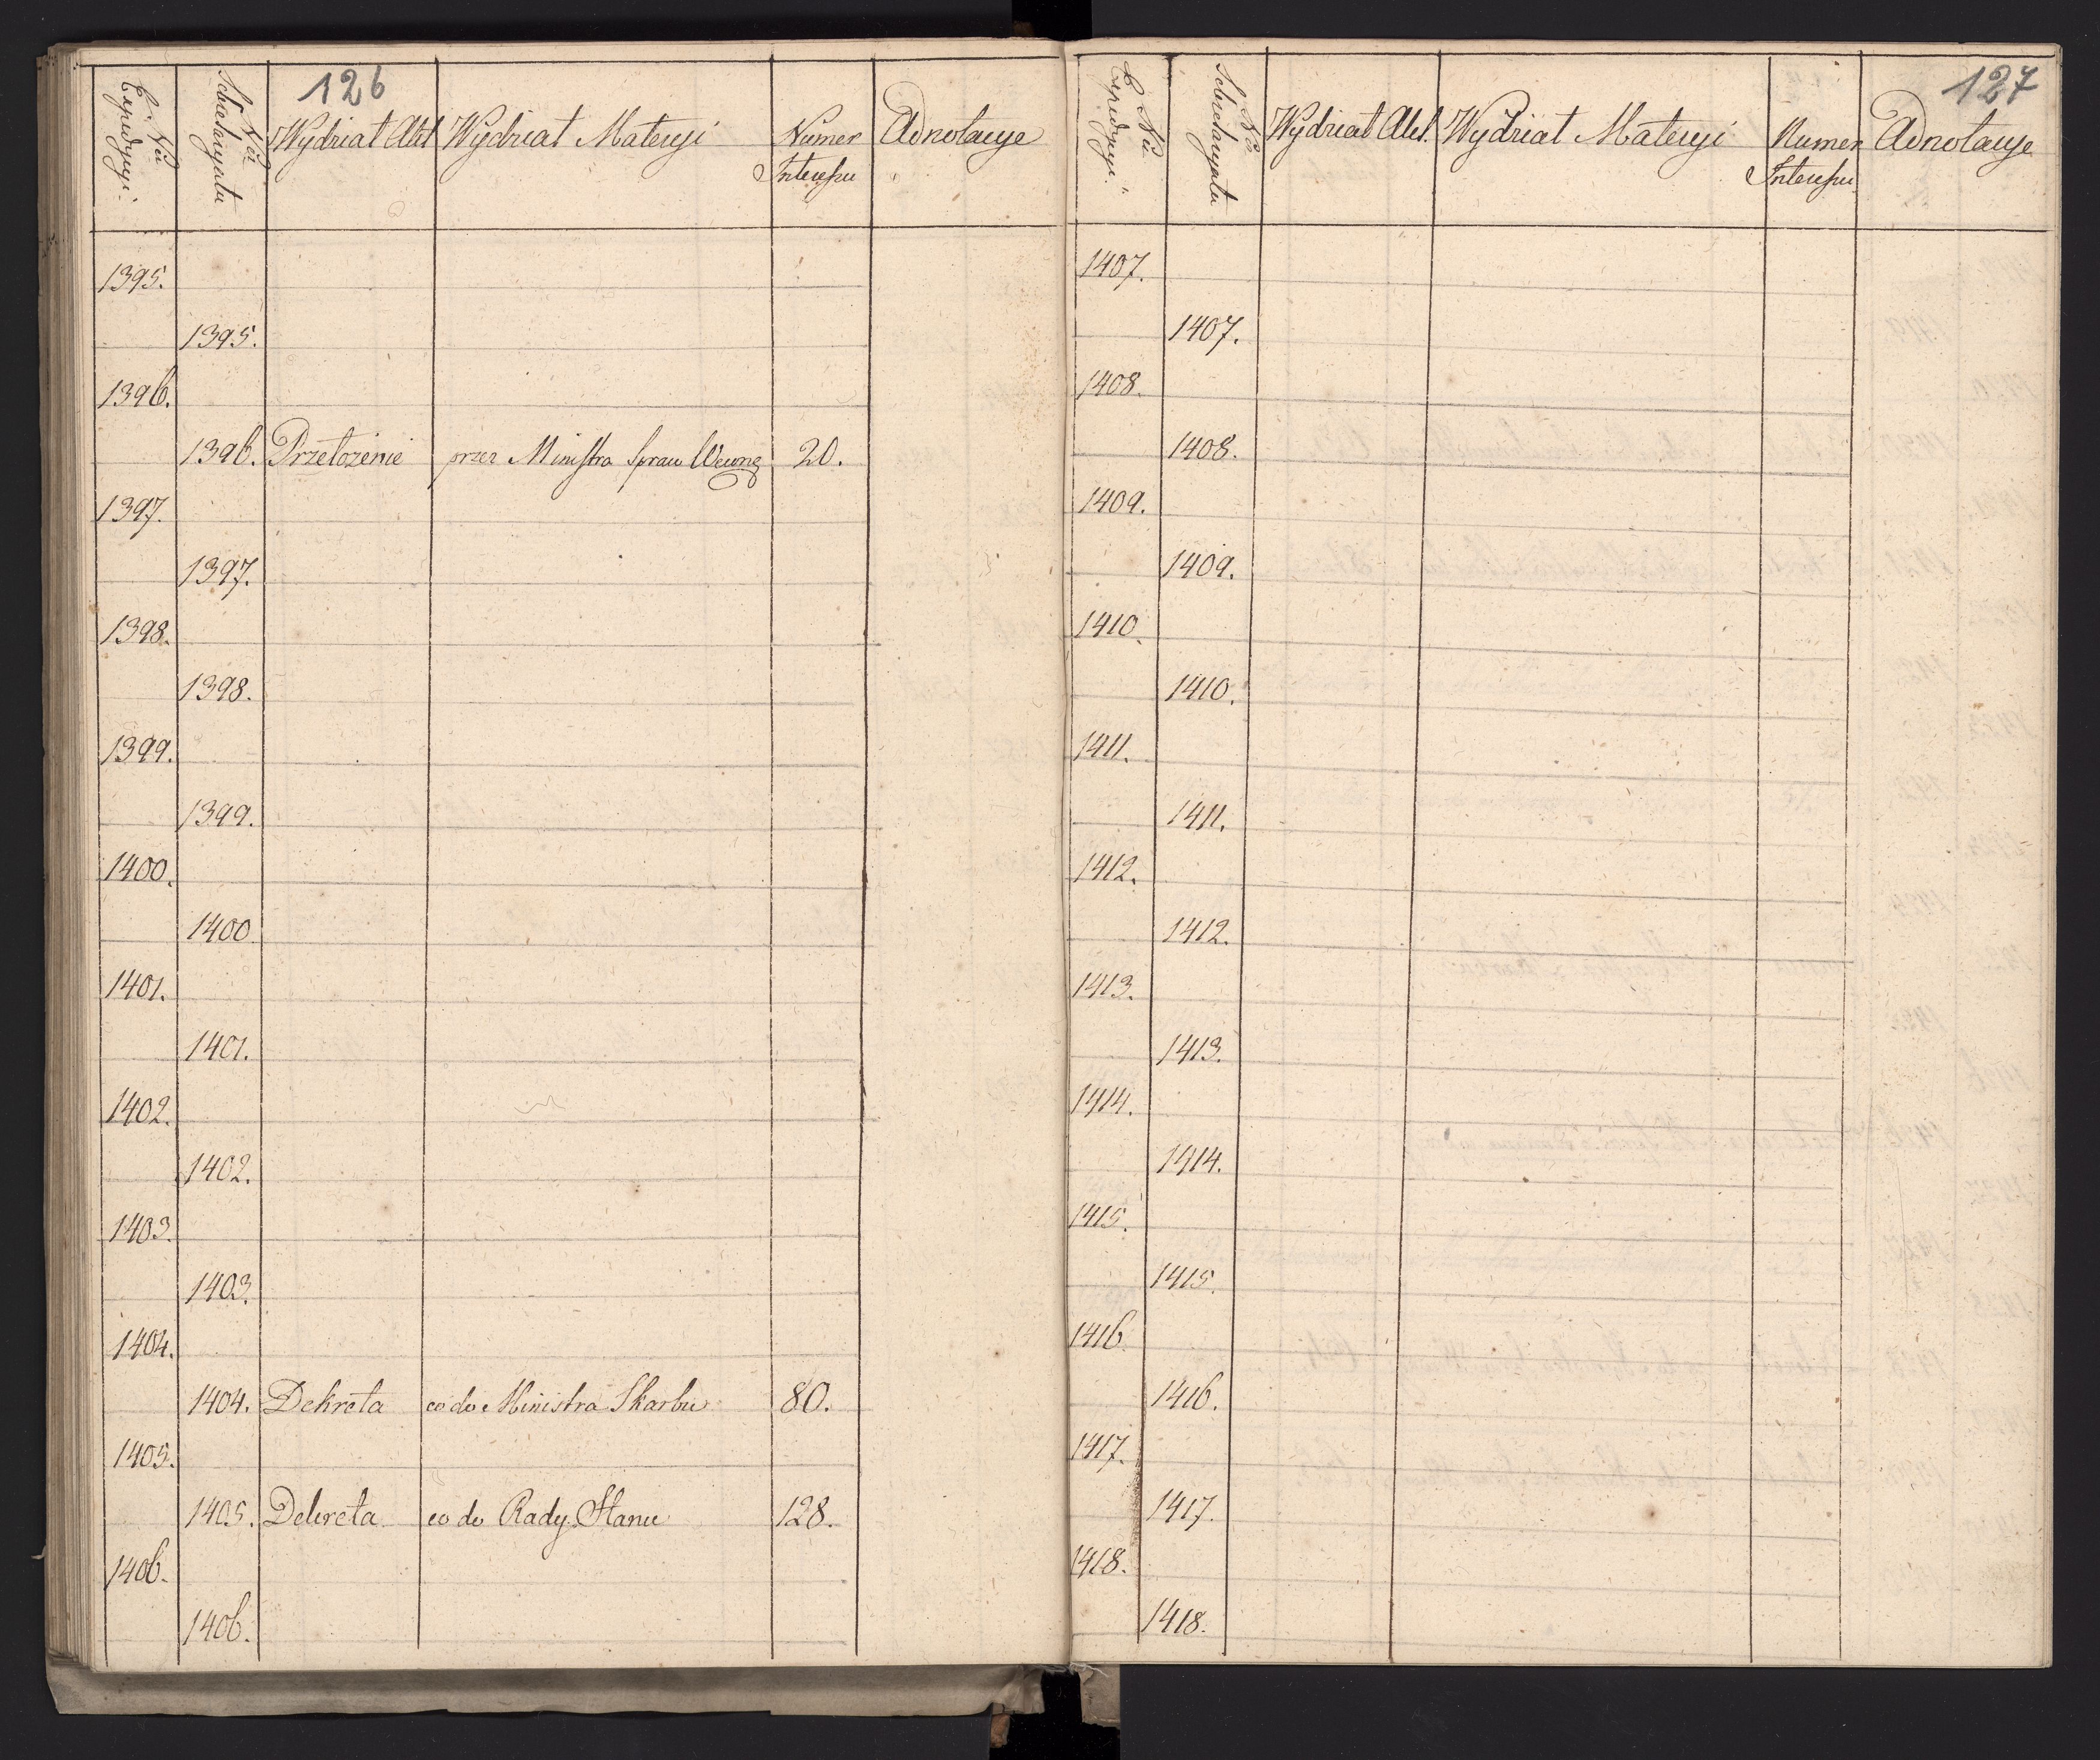 126
No Expedycyi.
No Sekretaryatu
Wydział Akt
Wydział Materyi
Numer Interessu
Adnotacye
1395.
1395.
1396.
1396. Przełożenie przez Ministra Spraw Wewnę 20.
1397.
1397.
1398.
1398.
1399.
1399.
1400.
1400
1401.
1401.
1402.
1402.
1403.
1403.
1404.
1404. Dekreta co do Ministra Skarbu 80.
1405.
1405. Dekreta co do Rady Stanu 128.
1406.
1406.
127
No Expedycyi.
No Sekretaryatu
Wydział Akt.
Wydział Materyi
Numer Interessu
Adnotacye
1407.
1407.
1408.
1408.
1409.
1409.
1410.
1410.
1411.
1411.
1412.
1412.
1413.
1413.
1414.
1414.
1415.
1415.
1416.
1416.
1417.
1417.
1418.
1418.